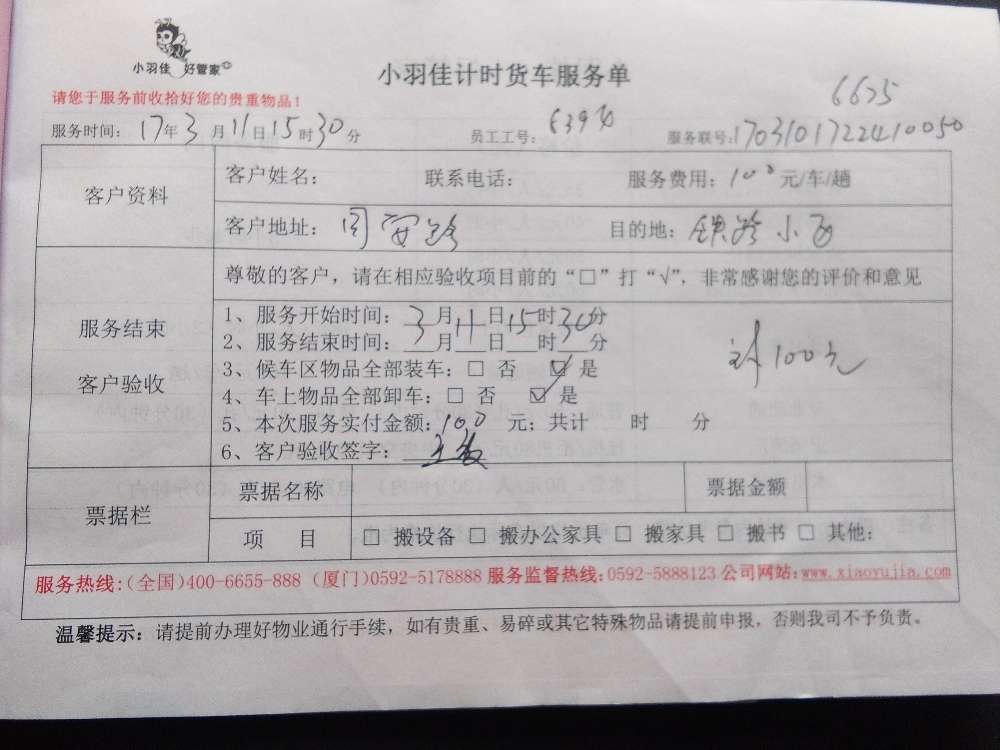 小羽佳 好管家
小羽佳计时货车服务单
6675
请您于服务前收拾好您的贵重物品！
服务时间：17年3月11日15时30分 员工工号： 服务联号：1703101722410050
客户资料
客户姓名： 联系电话： 服务费用：100元/车/趟
客户地址： 安路 目的地：铁路小
尊敬的客户，请在相应验收项目前的“□”打“√”，非常感谢您的评价和意见
服务结束
客户验收
1、服务开始时间：3月11日15时30分
2、服务结束时间：___月___日___时___分
3、候车区物品全部装车：□ 否 ☑ 是
4、车上物品全部卸车：□ 否 ☑ 是
5、本次服务实付金额：100 元；共计 时 分
6、客户验收签字：
100元
票据栏
票据名称 票据金额
项 目 □ 搬设备 □ 搬办公家具 □ 搬家具 □ 搬书 □ 其他：
服务热线：(全国)400-6655-888 (厦门)0592-5178888 服务监督热线：0592-5888123 公司网站：www.xiaoyujia.com
温馨提示：请提前办理好物业通行手续，如有贵重、易碎或其它特殊物品请提前申报，否则我司不予负责。